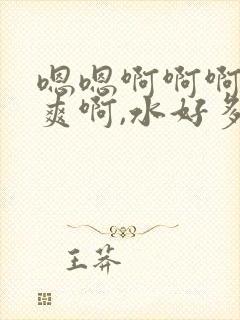 嗯嗯啊啊啊
爽啊,水好多
王莽